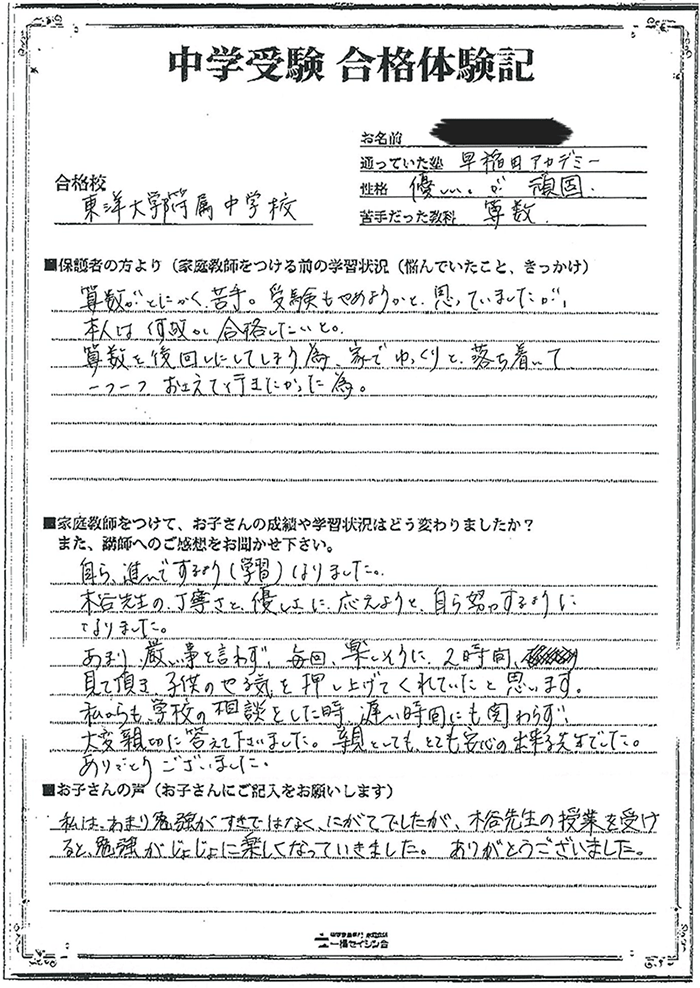 中学受験 合格体験記
お名前
通っていた塾 早稲田アカデミー
性格 優しい。が 頑固.
苦手だった教科 算数.
合格校
東洋大学附属中学校
■保護者の方より（家庭教師をつける前の学習状況（悩んでいたこと、きっかけ）
算数がとにかく、苦手。受験もやめようかと、思っていましたが、
本人は何故か合格したいと。
算数を後回しにしてしまう為、家でゆっくりと、落ち着いて
一つ一つ おぼえて行きたかった為。
■家庭教師をつけて、お子さんの成績や学習状況はどう変わりましたか？
また、講師へのご感想をお聞かせ下さい。
自ら、進んでするよう（学習）なりました。
木谷先生の、丁寧さと、優しさに、応えようと、自ら努力するように
なりました。
あまり、厳しい事を言わず、毎回、楽しそうに、2時間、
見て頂き 子供のやる気を押し上げてくれていたと思います。
私からも、学校の相談をした時、遅い時間にも関わらず、
大変親切に答えて下さいました。親としても、とても安心の出来る先生でした。
ありがとうございました.
■お子さんの声（お子さんにご記入をお願いします）
私は、あまり勉強がすきではなく、にがてでしたが、木谷先生の授業を受け
ると、勉強がじょじょに楽しくなっていきました。 ありがとうございました。
一橋セイシン会